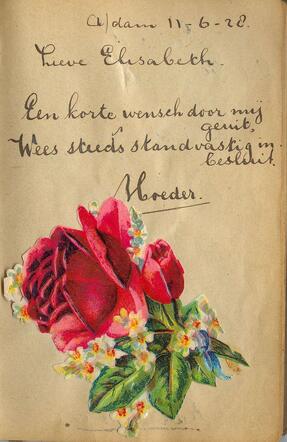 A/dam 11-6-28.
Lieve Elisabeth.
Een korte wensch door mij
geuit,
Wees steeds standvastig in
besluit.
Moeder.